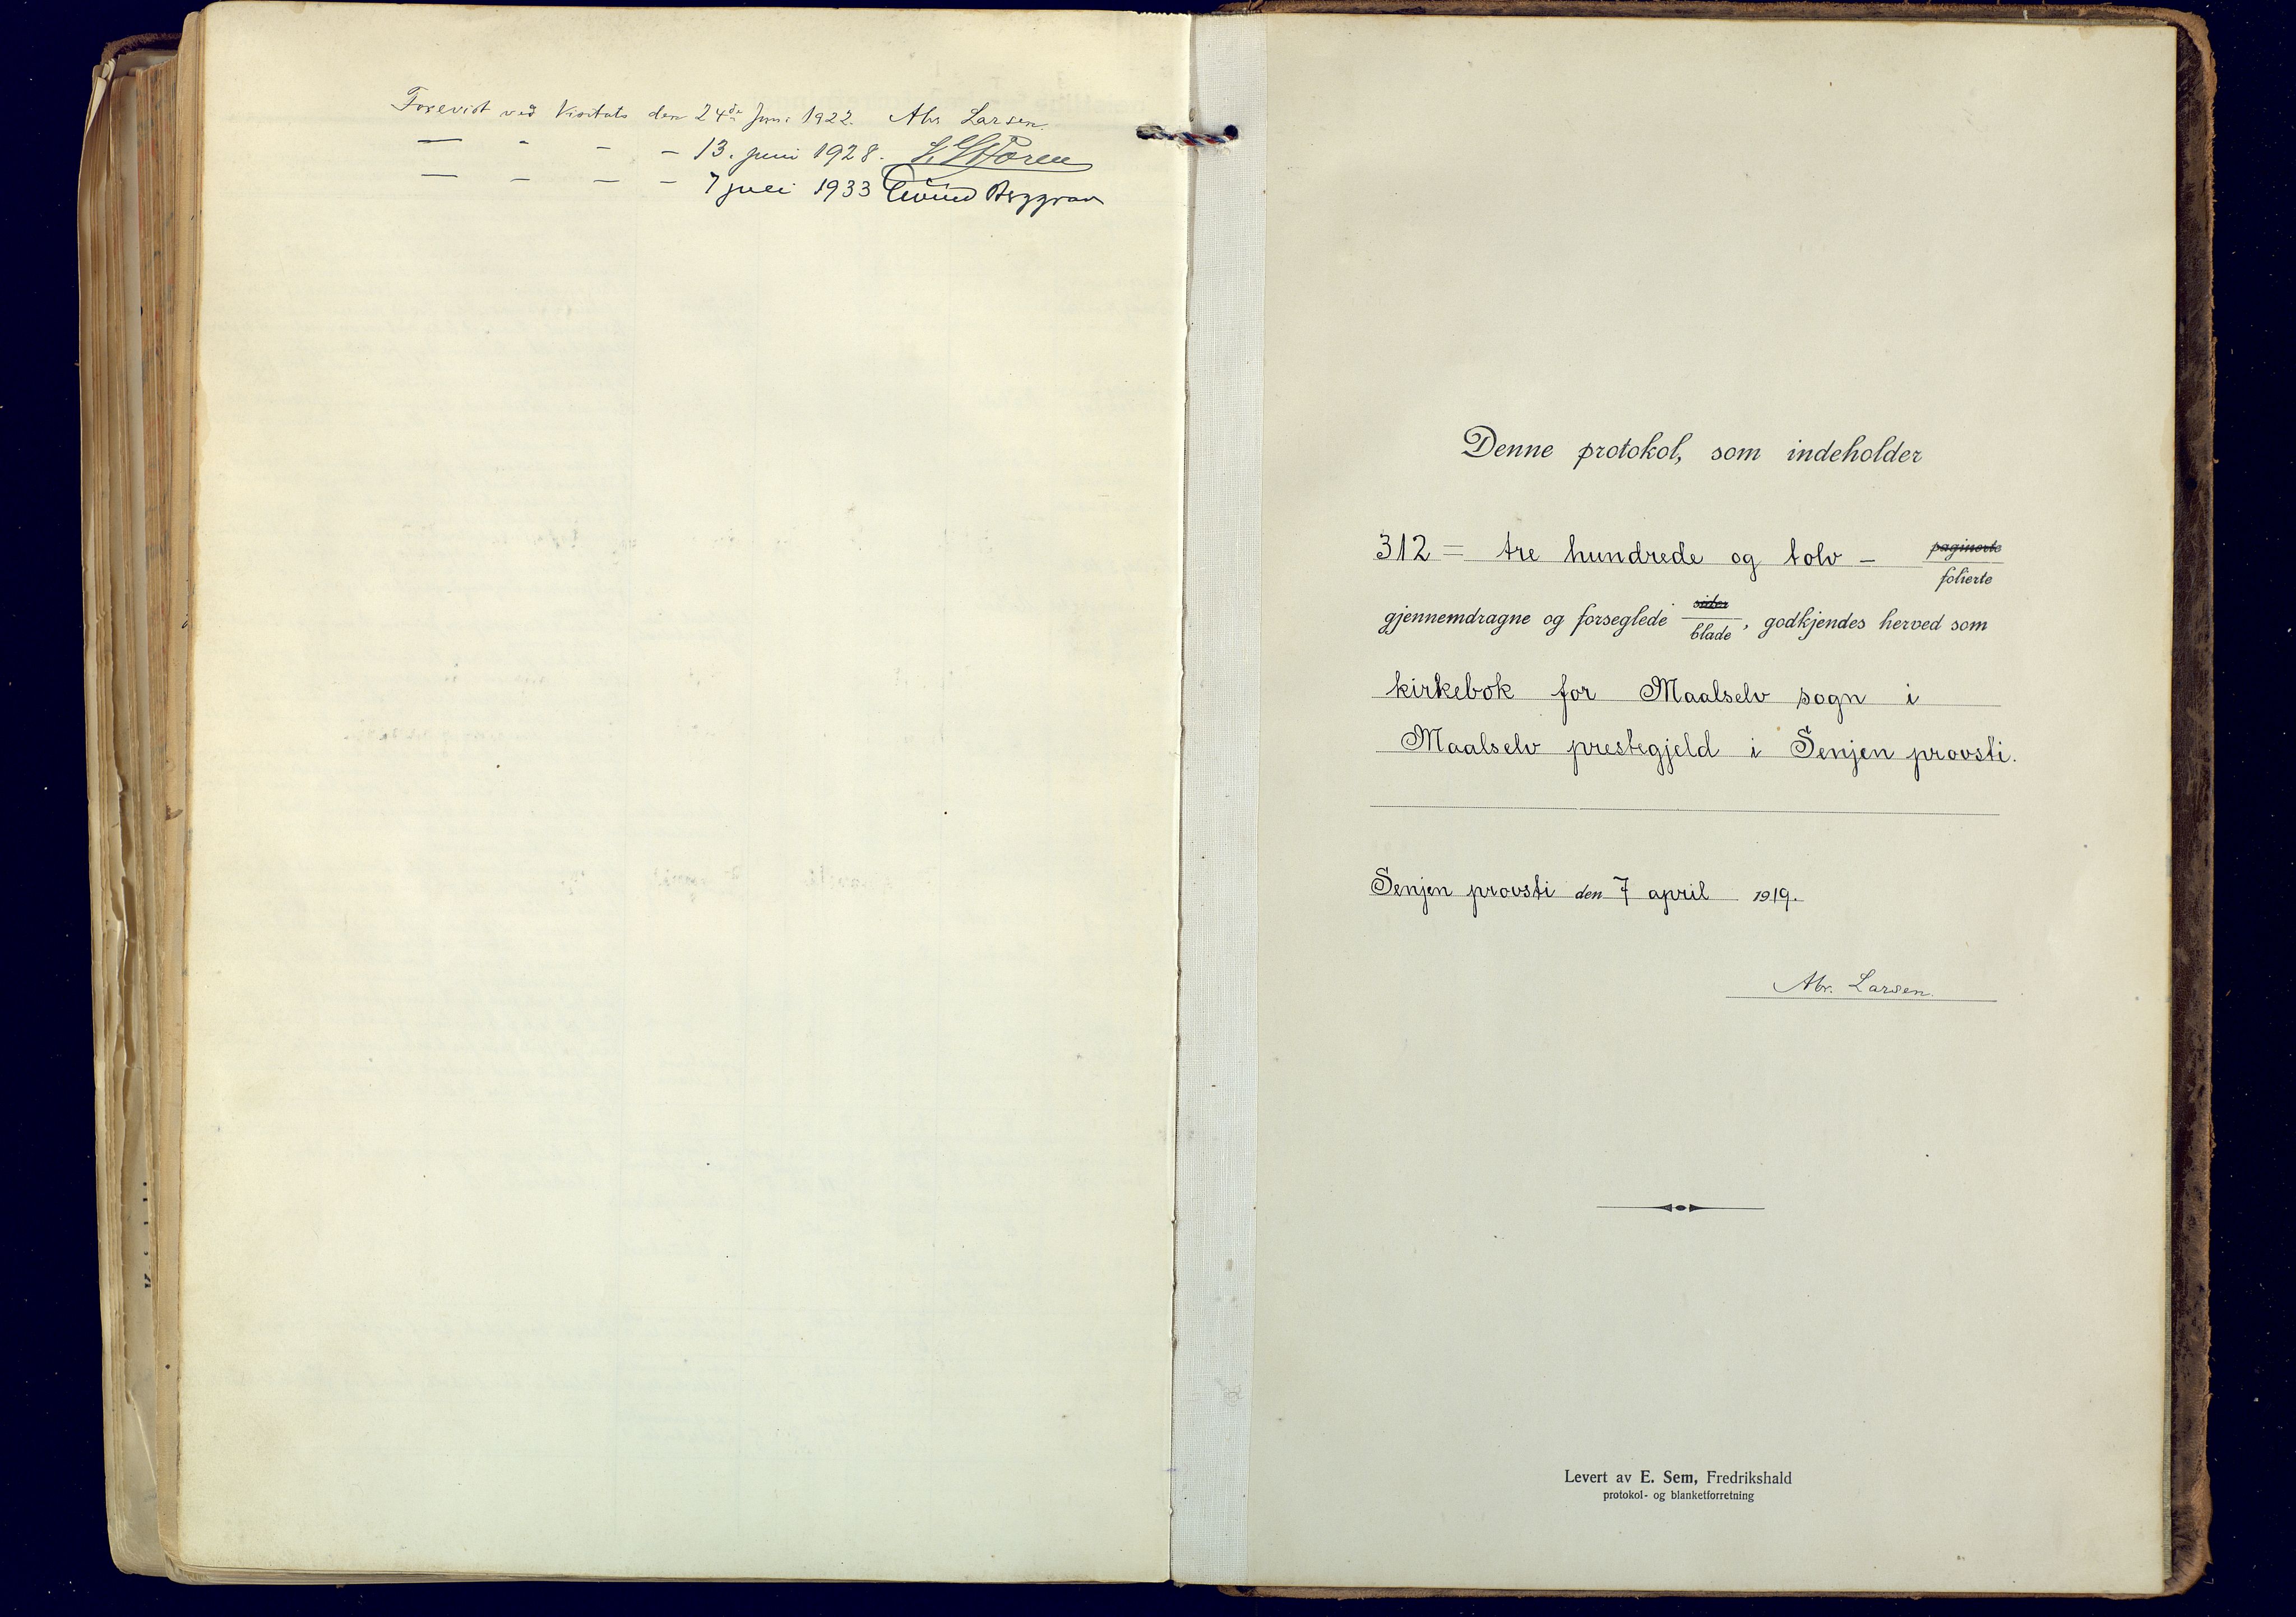 Forevist ved Visitats den 24de Juni 1922. Abr Larsen.
— - - - 13. juni 1928.
— - - - 7 juli 1933 Eivind Berggrav
Denne protokol, som indeholder
312 = tre hundrede og tolv - paginerte
folierte
gjennemdragne og forseglede sider
blade, godkjendes herved som
kirkebok for Maalselv sogn i
Maalselv prestegjeld i Senjen provsti.
Senjen provsti den 7 april 1919.
Abr. Larsen.
Levert av E. Sem, Fredrikshald
protokol- og blanketforretning